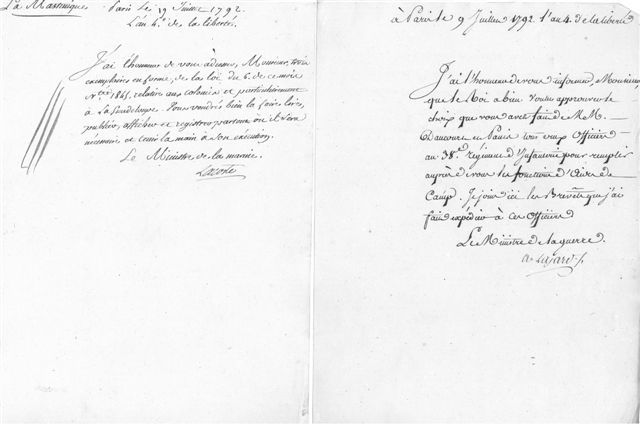 La Martinique Paris Le 19 Juillet 1792.
L'an 4.e de la liberté.
J'ai l'honneur de vous adresser, Monsieur, trois
exemplaires en forme, de la loi du 6. de ce mois
N.o 1841, relative aux colonies et particulièrement
à La Guadeloupe. Vous voudrés bien la faire lire,
publier, afficher et registrer partout où il sera
nécessaire et tenir la main à son exécution.
Le Ministre de la marine.
Lacoste
à Paris le 9 Juillet 1792. l'an 4. de la liberté
J'ai l'honneur de vous informer, Monsieur,
que le Roi a bien voulu approuver le
choix que vous avez fait de M.M.
Daucourt et officiers
au 38.e régiment d'Infanterie pour remplir
auprès de vous les fonctions d'Aides de
Camp. Je joins ici les Brevets que j'ai
fait expédier à ces Officiers
Le Ministre de la guerre.
a. Lajard